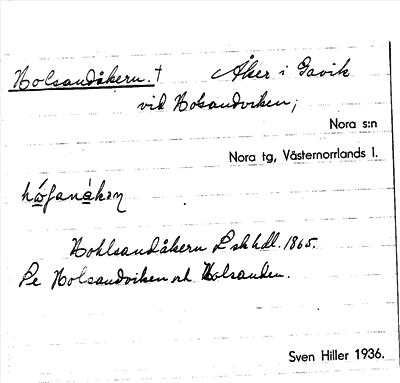 Holsandåkern. † Åker i Gavik
vid Holsandviken;
Nora s:n
Nora tg, Västernorrlands l.
Hohlsandåkern L skhdl. 1865.
Se Holsandviken och Holsanden.
Sven Hiller 1936.